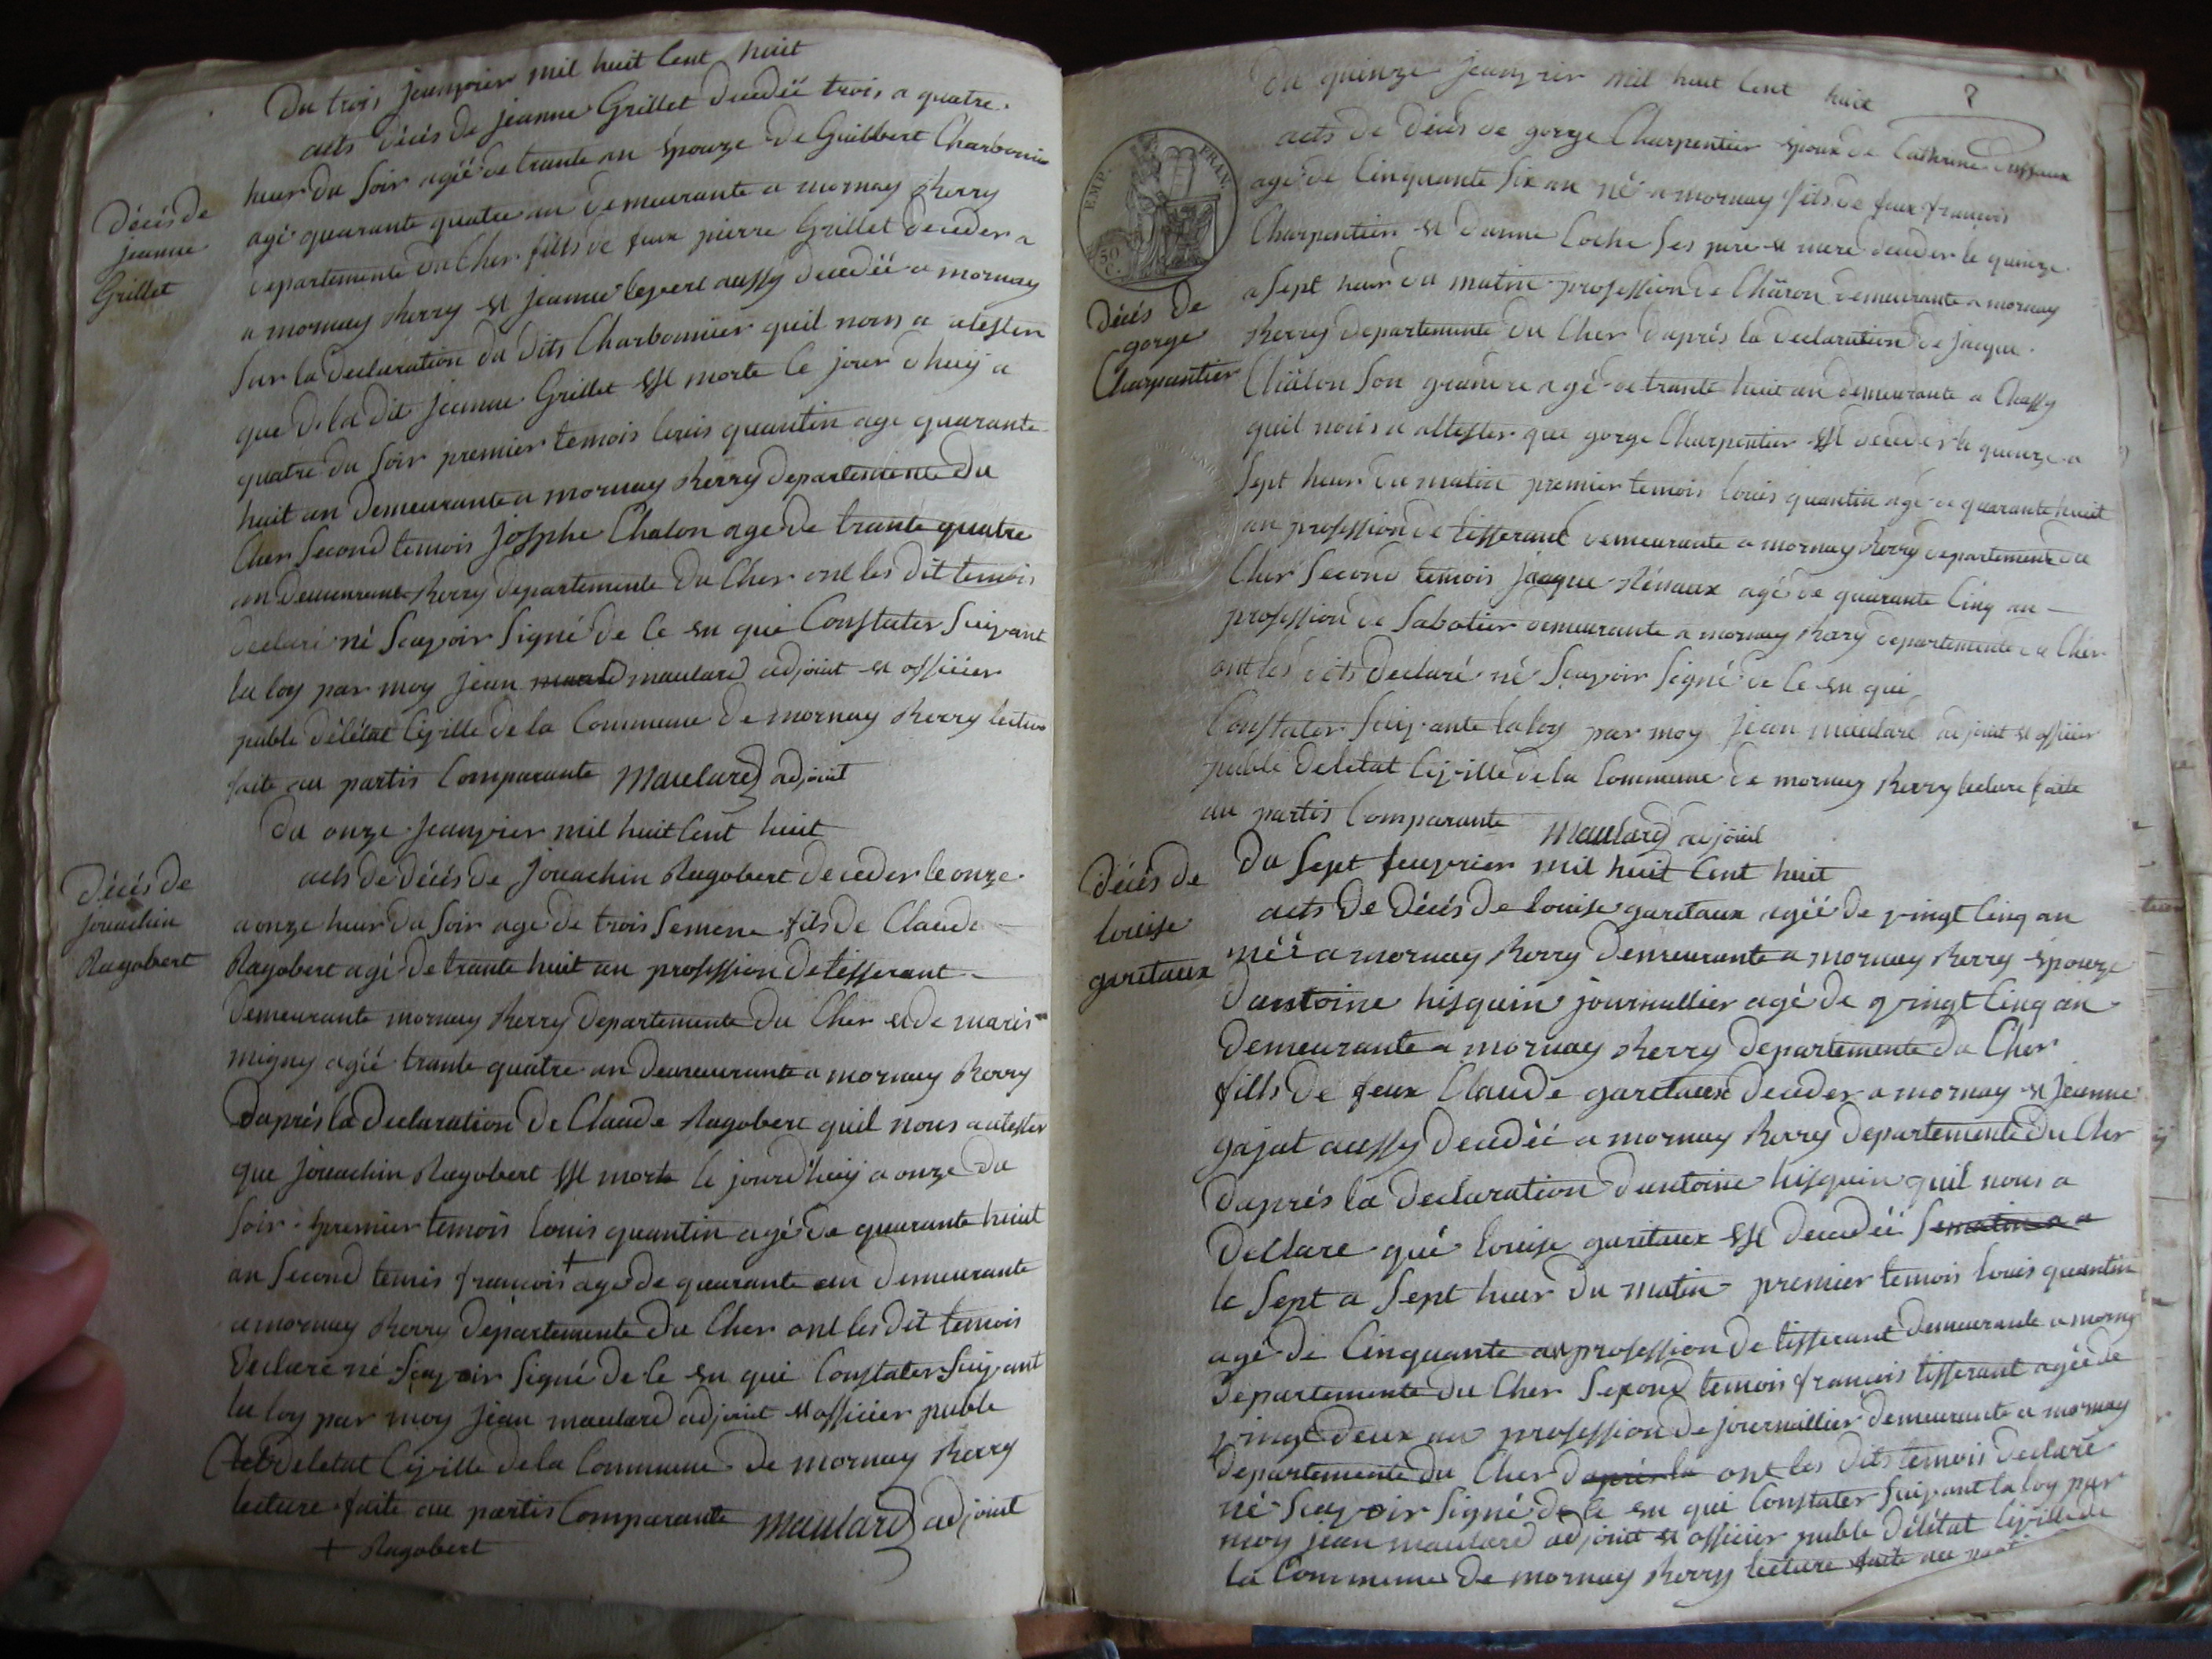 Du trois jeanvier mil huit Cent huit
acts décés de jeanne Grillet decedéé trois a quatre
heur du Soir agéé de trante an épouze de Guilbbert Charbonnier
agé quarante quatre an demeurante a mornay Berry
Departemente du Cher fills de feux pierre Grillet deceder a
a mornay Berry et jeanne aussy decedéé a mornay
Sur la declaration du dits Charbonnier quil nous a atester
que de la dit jeanne Grillet Est morte le jour d huij a
quatre du Soir premier temois louis quantin age quarante
huit an demeurante a mornay Berry departemente du
Cher Second temois josphe Chalon age de trante quatre
an demeurant Berry departemente du Cher ont les dit temois
declaré né Scavoir Signé de ce en qui Constater Suivant
la loy par moy jean maulard adjoint et officier
public délétat Civille de la Commune de mornay Berry lecture
faite au partis Comparante Maulard adjoint
Décés de
jeanne
Grillet
Du onze jeanvier mil huit Cent huit
acts de décés de jouachin Ragobert deceder le onze
a onze heur du Soir age de trois Semene fils de Claude
Ragobert agé de trante huit an profession de tisserant
demeurante mornay Berry departemente du Cher et de marie
migny agéé trante quatre an demeurante a mornay Berry
daprés la declaration de Claude Ragobert quil nous a atester
que jouachin Ragobert Est morte le jourdhuij a onze du
Soir premier temois louis quantin agé de quarante huit
an Second temis francois + age de quarante an demeurante
a mornay Berry departemente du Cher ont les dit temois
declaré né Scavoir Signé de ce en qui Constater Suivant
la loy par moy jean maulard adjoint et officier publc
deletat Civille de la Commune de mornay Berry
lecture faite au partis Comparante Maulard adjoint
+ Ragobert
Décés de
jouachin
Ragobert
Du quinze jeanvier mil huit Cent huit
acts de décés de gorge Charpentier époux de Catherine
agé de Cinquante Six an né a mornay fils de feux francois
Charpentier et danne Coche Ses pere et mere deceder le quinze
a Sept heur du matin profession de Charon demeurante a mornay
Berry departemente du Cher daprés la declaration de jacque
Châlon Son agé de trante huit an demeurante a Chassy
quil nous a attester que gorge Charpentier Est deceder le quinze a
Sept heur du matin premier temois louis quantin agé de quarante huit
an profession de tisserant demeurante a mornay Berry departemente du
Cher Second temois jacque agé de quarante Cinq an
profession de Sabotier demeurante a mornay Berry departemente du Cher
ont les dits declaré né Scavoir Signé de ce en qui
Constater Suivante la loy par moy jean maulard adjoint et officier
publc deletat Civille de la Commune de mornay Berry lecture faite
au partis Comparante Maulard adjoint
EMP. FRAN.
50 C.
Décés de
gorge
Charpentier
Du Sept feuvrier mil huit Cent huit
acts de décés de louise garitaux agéé de vingt Cinq an
néé a mornay Berry demeurante a mornay Berry épouze
dantoine hisquin journallier agé de vingt Cinq an
demeurante a mornay Berry departemente du Cher
fills de feux Claude garitaux deceder a mornay et jeanne
gajat aussy decedéé a mornay Berry departemente du Cher
daprés la declaration dantoine hisquin quil nous a
declare qué louise garitaux Est decedéé Sematin a a
le Sept a Sept heur du matin premier temois louis quantin
agé de Cinquante an profession de tisserant demeurante a morny
departemente du Cher Second temois francois tisserant agéé de
vingt deux an profession de journallier demeurante a mornay
departemente du Cher daprés la ont les dits temois declaré
né Scavoir Signé de ce en qui Constater Suivant la loy par
moy jean maulard adjoint et officier publc délétat Civille de
la Commune de mornay Berry lecture faite au
Décés de
louise
garitaux